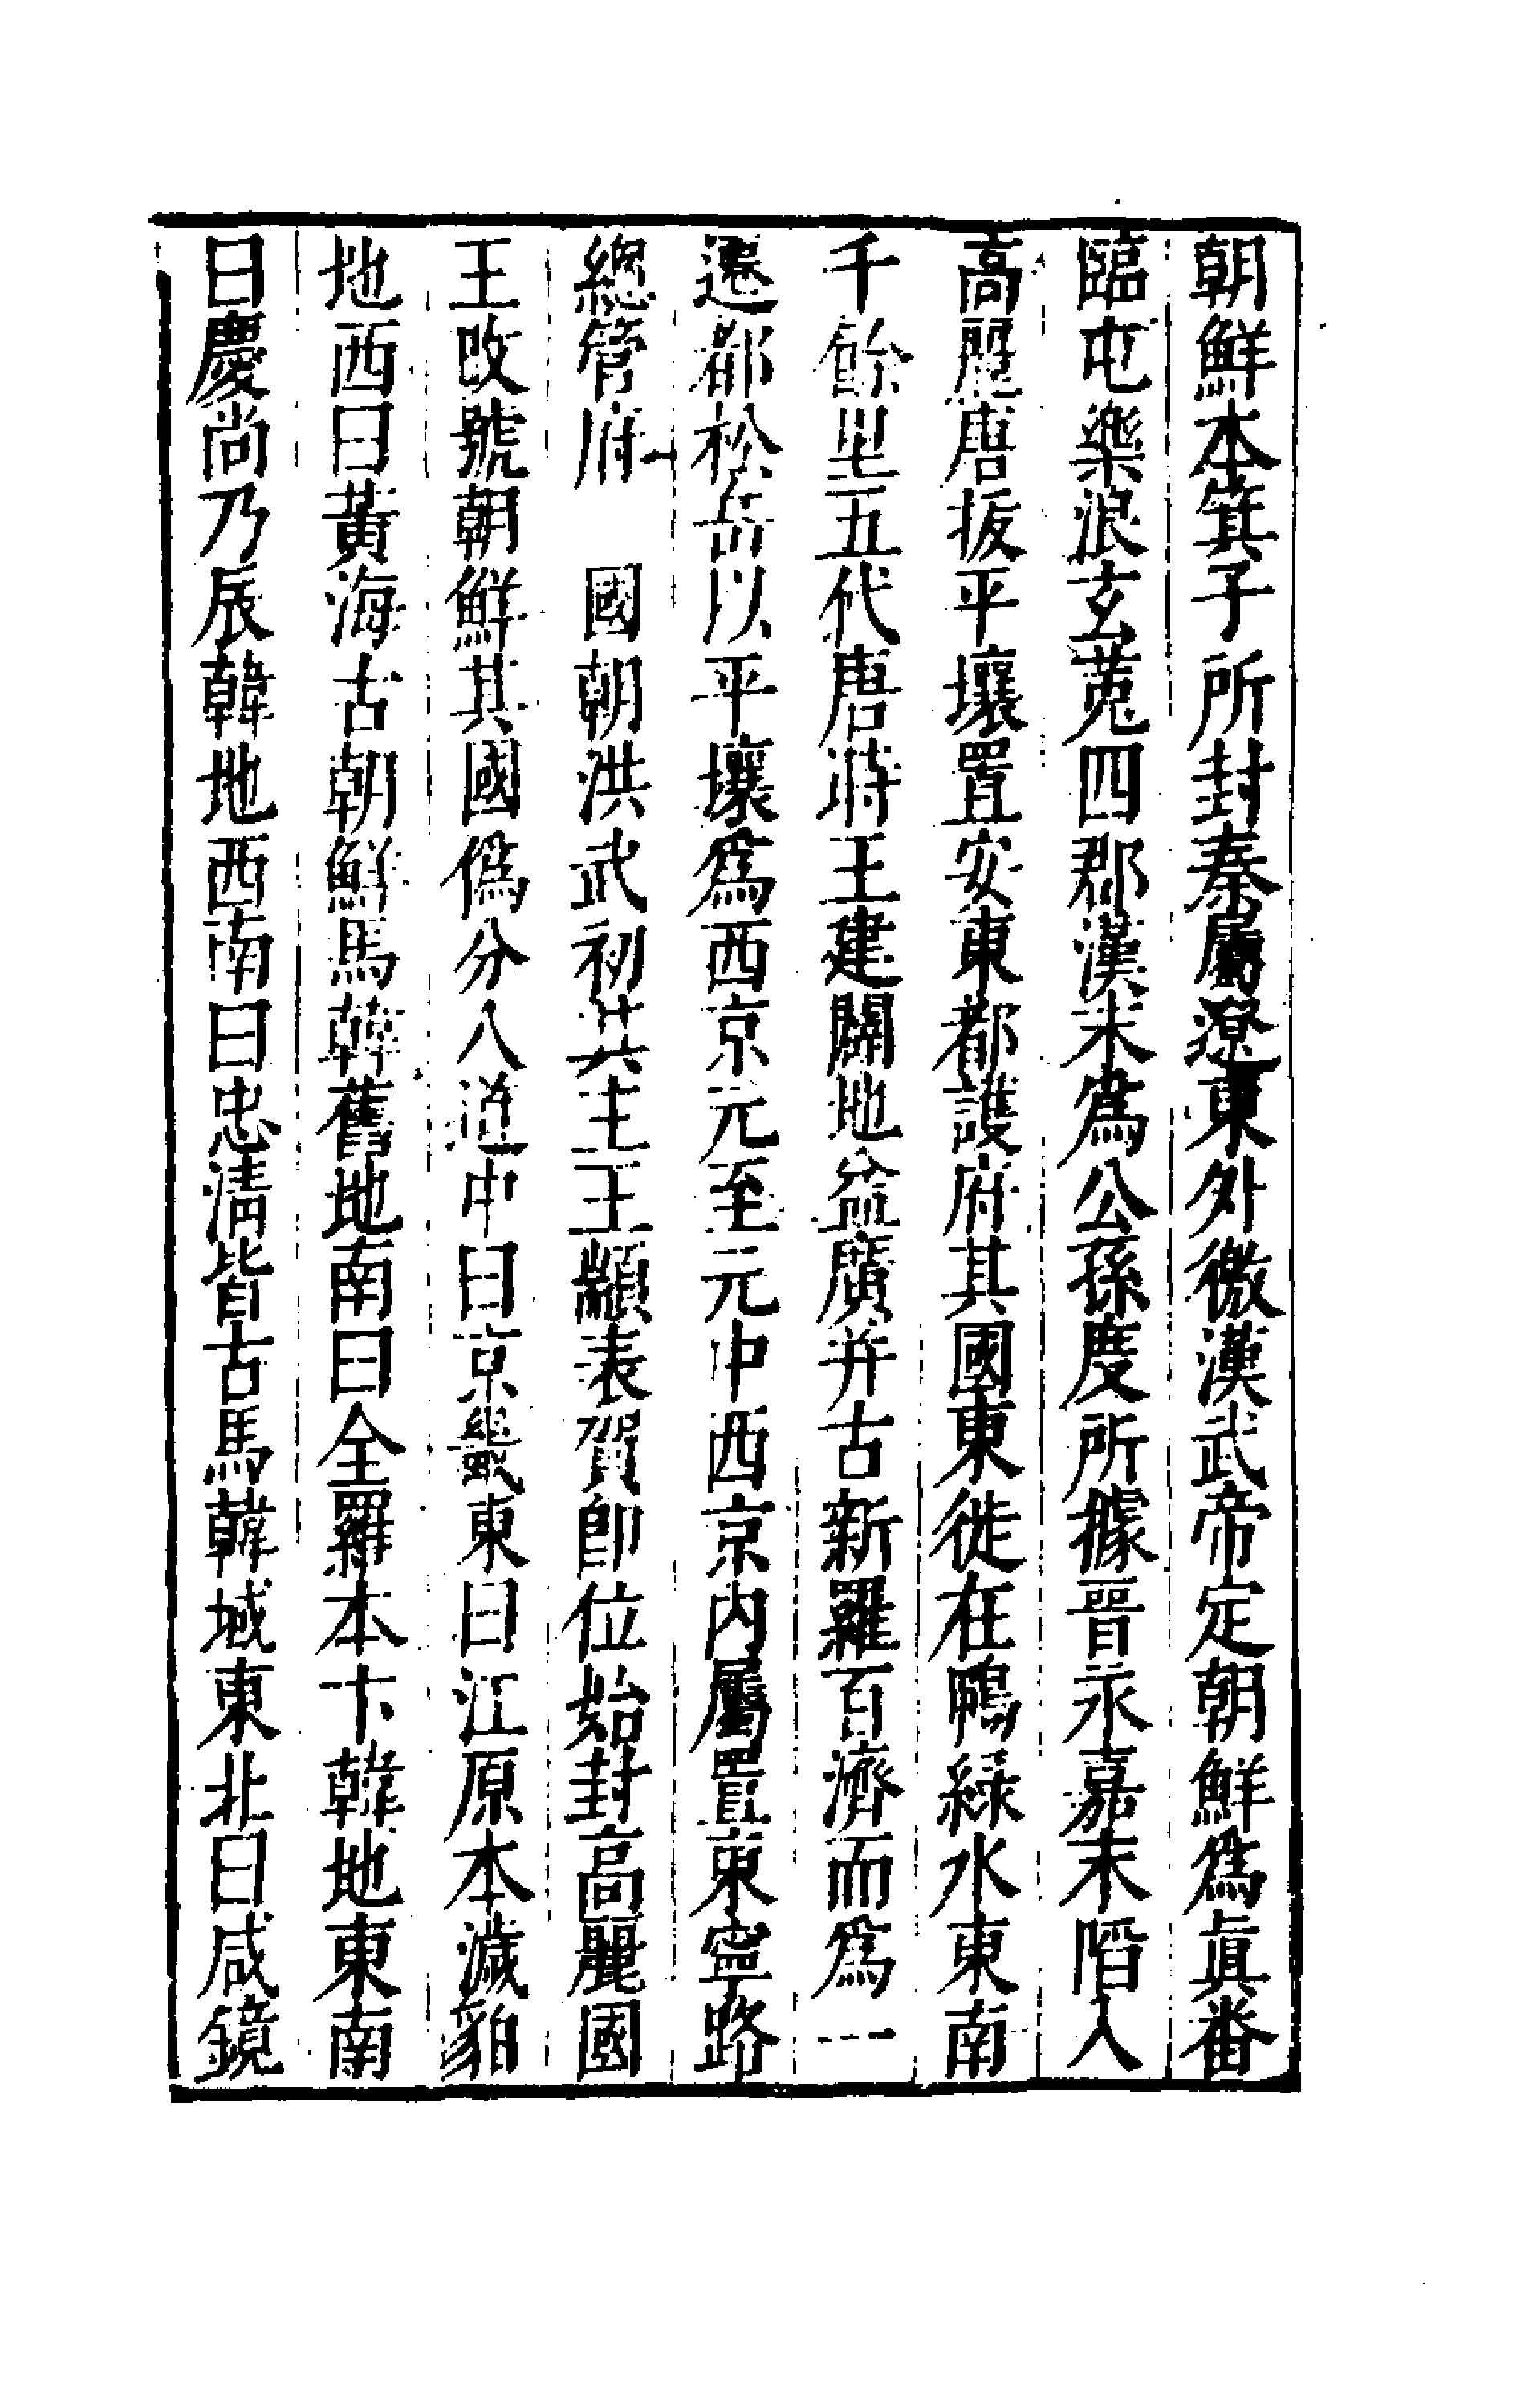 朝鮮本箕子所封秦屬遼東外徼漢武帝定朝鮮爲眞番
臨屯樂浪玄菟四郡漢末爲公孫度所據晉永嘉末陷入
高麗唐拔平壤置安東都護府其國東徙在鴨綠水東南
千餘里五代唐時王建闢地益廣并古新羅百濟而爲一
遷都松岳以平壤爲西京元至元中西京內屬置東寧路
總管府　國朝洪武初其主王顓表賀卽位始封高麗國
王改號朝鮮其國僞分八道中曰京畿東曰江原本濊貊
地西曰黃海古朝鮮馬韓舊地南曰全羅本卞韓地東南
曰慶尚乃辰韓地西南曰忠淸皆古馬韓域東北曰咸鏡